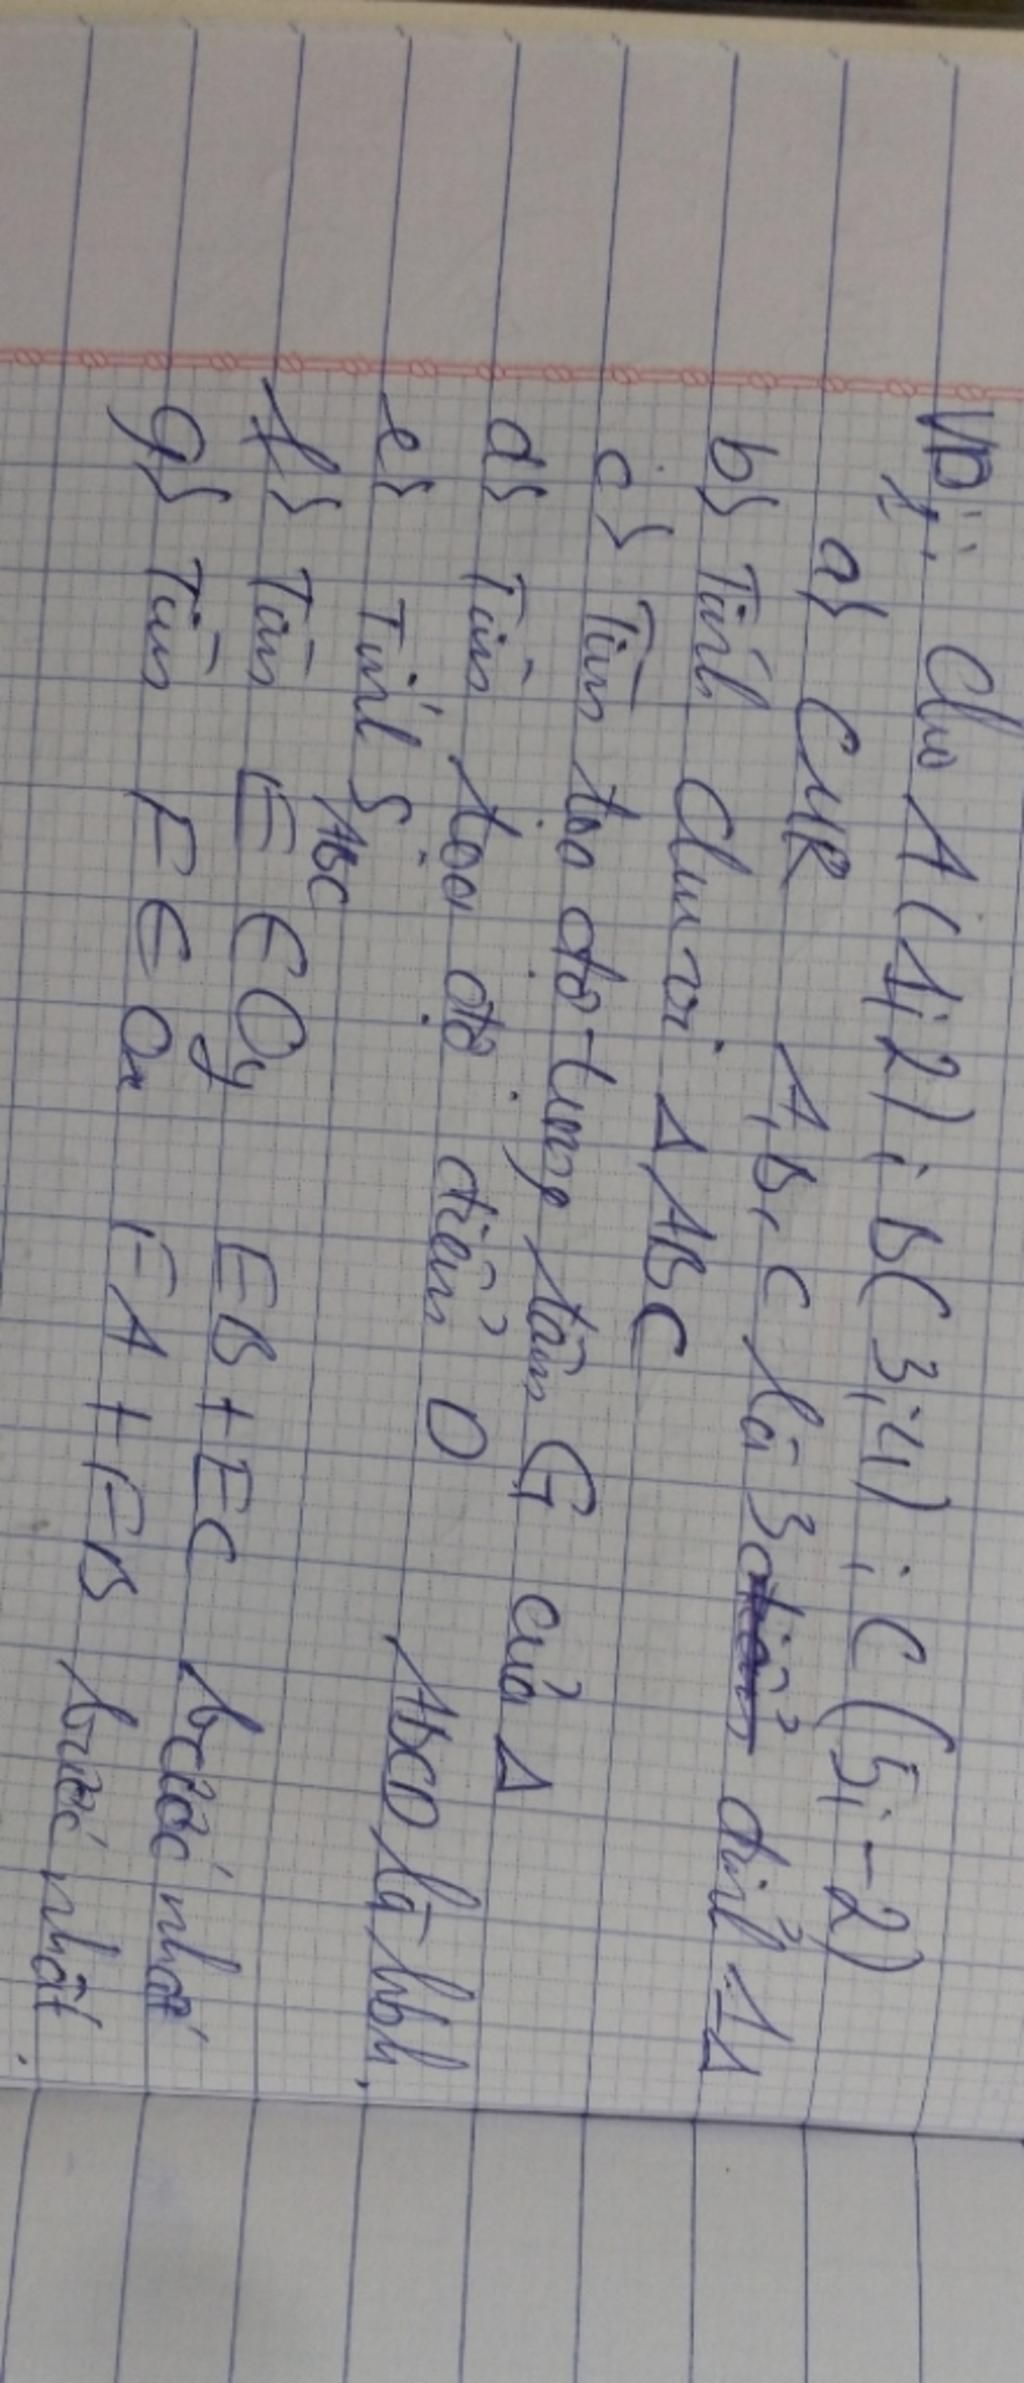 VD1: Cho A(1;2); B(3;4); C(5;-2)
a} CMR A,B,C là 3 điểm đỉnh 1Δ
b} Tính Chu vi Δ ABC
c} Tìm toạ độ trung tâm G của Δ
d} Tìm toạ độ điểm D ABCD là hbh,
e} Tính S ABC
f} Tìm E ∈ Oy EB + EC bước nhất
g} Tìm F ∈ Ox FA + FB bước nhất.